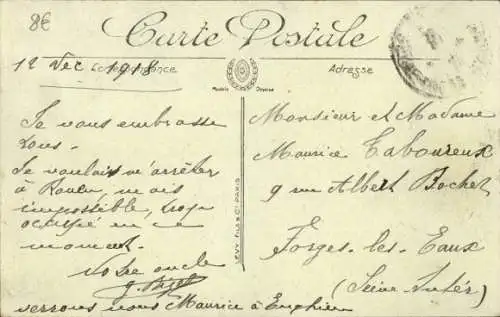 8€
Carte Postale
Correspondance
Adresse
Modèle Déposé
12 Dec 1918
Je vous embrasse
tous.
Je voulais m'arrêter
à Rouen, mais
impossible, trop
occupé en ce
moment.
Votre oncle
verrons nous Maurice à Enghien
LEVY FILS & Cie PARIS
Monsieur et Madame
Maurice Taboureux
9 rue Albert Bochet
Forges-les-Eaux
(Seine Infér)